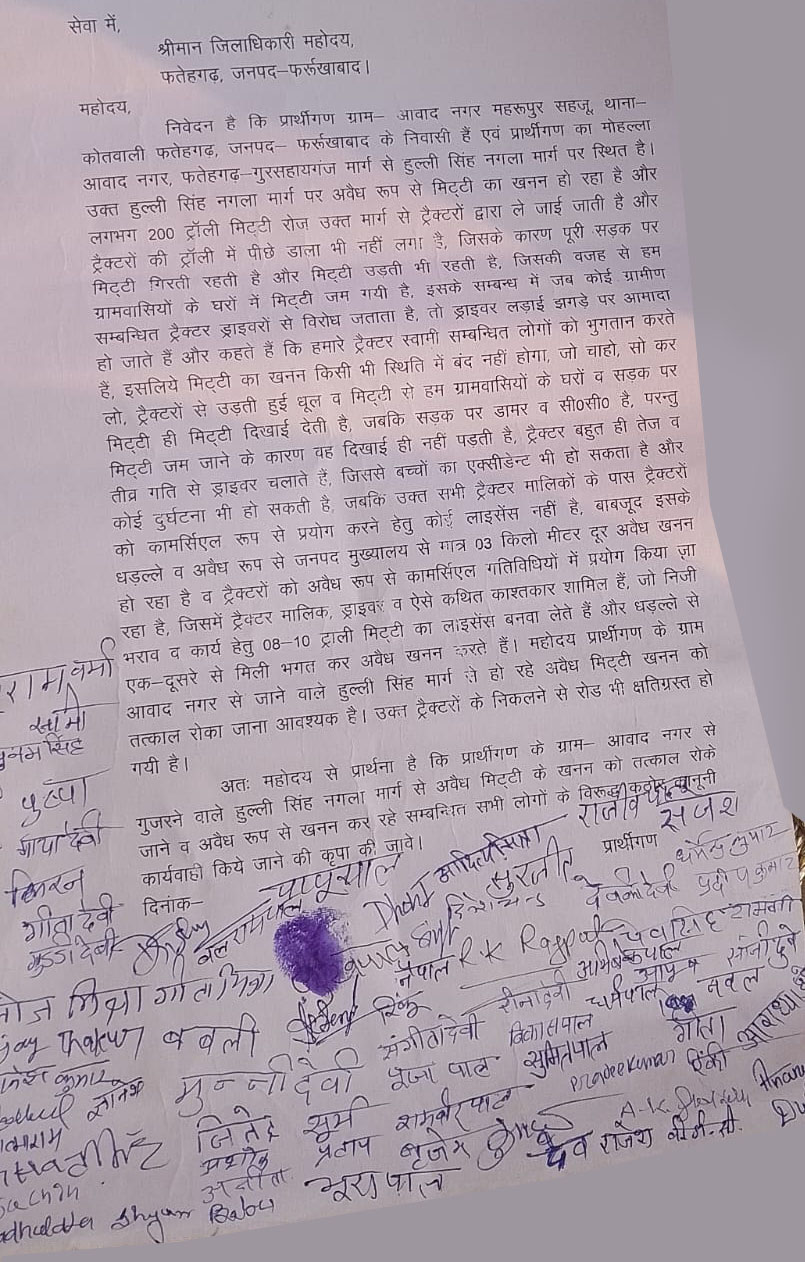 सेवा में,
श्रीमान जिलाधिकारी महोदय,
फतेहगढ़, जनपद–फर्रूखाबाद।
महोदय,
निवेदन है कि प्रार्थीगण ग्राम– आवाद नगर महरूपुर सहजू, थाना–
कोतवाली फतेहगढ़, जनपद– फर्रूखाबाद के निवासी हैं एवं प्रार्थीगण का मोहल्ला
आवाद नगर, फतेहगढ़–गुरसहायगंज मार्ग से हुल्ली सिंह नगला मार्ग पर स्थित है।
उक्त हुल्ली सिंह नगला मार्ग पर अवैध रूप से मिट्टी का खनन हो रहा है और
लगभग 200 ट्रॉली मिट्टी रोज उक्त मार्ग से ट्रैक्टरों द्वारा ले जाई जाती है और
ट्रैक्टरों की ट्रॉली में पीछे डाला भी नहीं लगा है, जिसके कारण पूरी सड़क पर
मिट्टी गिरती रहती है और मिट्टी उड़ती भी रहती है, जिसकी वजह से हम
ग्रामवासियों के घरों में मिट्टी जम गयी है, इसके सम्बन्ध में जब कोई ग्रामीण
सम्बन्धित ट्रैक्टर ड्राइवरों से विरोध जताता है, तो ड्राइवर लड़ाई झगड़े पर आमादा
हो जाते हैं और कहते हैं कि हमारे ट्रैक्टर स्वामी सम्बन्धित लोगों को भुगतान करते
हैं, इसलिये मिट्टी का खनन किसी भी स्थिति में बंद नहीं होगा, जो चाहो, सो कर
लो, ट्रैक्टरों से उड़ती हुई धूल व मिट्टी से हम ग्रामवासियों के घरों व सड़क पर
मिट्टी ही मिट्टी दिखाई देती है, जबकि सड़क पर डामर व सी0सी0 है, परन्तु
मिट्टी जम जाने के कारण वह दिखाई ही नहीं पड़ती है, ट्रैक्टर बहुत ही तेज व
तीव्र गति से ड्राइवर चलाते हैं, जिससे बच्चों का एक्सीडेन्ट भी हो सकता है और
कोई दुर्घटना भी हो सकती है, जबकि उक्त सभी ट्रैक्टर मालिकों के पास ट्रैक्टरों
को कामर्सिएल रूप से प्रयोग करने हेतु कोई लाइसेंस नहीं है, बाबजूद इसके
धड़ल्ले व अवैध रूप से जनपद मुख्यालय से मात्र 03 किलो मीटर दूर अवैध खनन
हो रहा है व ट्रैक्टरों को अवैध रूप से कामर्सिएल गतिविधियों में प्रयोग किया जा
रहा है, जिसमें ट्रैक्टर मालिक, ड्राइवर व ऐसे कथित काश्तकार शामिल हैं, जो निजी
भराव व कार्य हेतु 08–10 ट्राली मिट्टी का लाइसेंस बनवा लेते हैं और धड़ल्ले से
एक–दूसरे से मिली भगत कर अवैध खनन करते हैं। महोदय प्रार्थीगण के ग्राम
आवाद नगर से जाने वाले हुल्ली सिंह मार्ग से हो रहे अवैध मिट्टी खनन को
तत्काल रोका जाना आवश्यक है। उक्त ट्रैक्टरों के निकलने से रोड भी क्षतिग्रस्त हो
गयी है।
अतः महोदय से प्रार्थना है कि प्रार्थीगण के ग्राम– आवाद नगर से
गुजरने वाले हुल्ली सिंह नगला मार्ग से अवैध मिट्टी के खनन को तत्काल रोके
जाने व अवैध रूप से खनन कर रहे सम्बन्धित सभी लोगों के विरूद्ध कठोर कानूनी
कार्यवाही किये जाने की कृपा की जावे।
दिनांक–
प्रार्थीगण
राम वर्मा
पुष्पा
माया देवी
किरन
गीता देवी
गुड्डी देवी
सुरजीत
देवकी देवी
नेपाल R.K Rajput
गीता मिश्रा
रिंकू
बबली
संगीता देवी
रीना देवी
धर्मपाल
नवल
मुन्नी देवी
पूजा पाल
विकास पाल
सुमित पाल
गीता
Pradeekumar
पिंकी
रामवीर पाल
प्रताप
बृजेश
देव राजेश
अनीता
भूरा पाल
Sachin
Shyam Babu